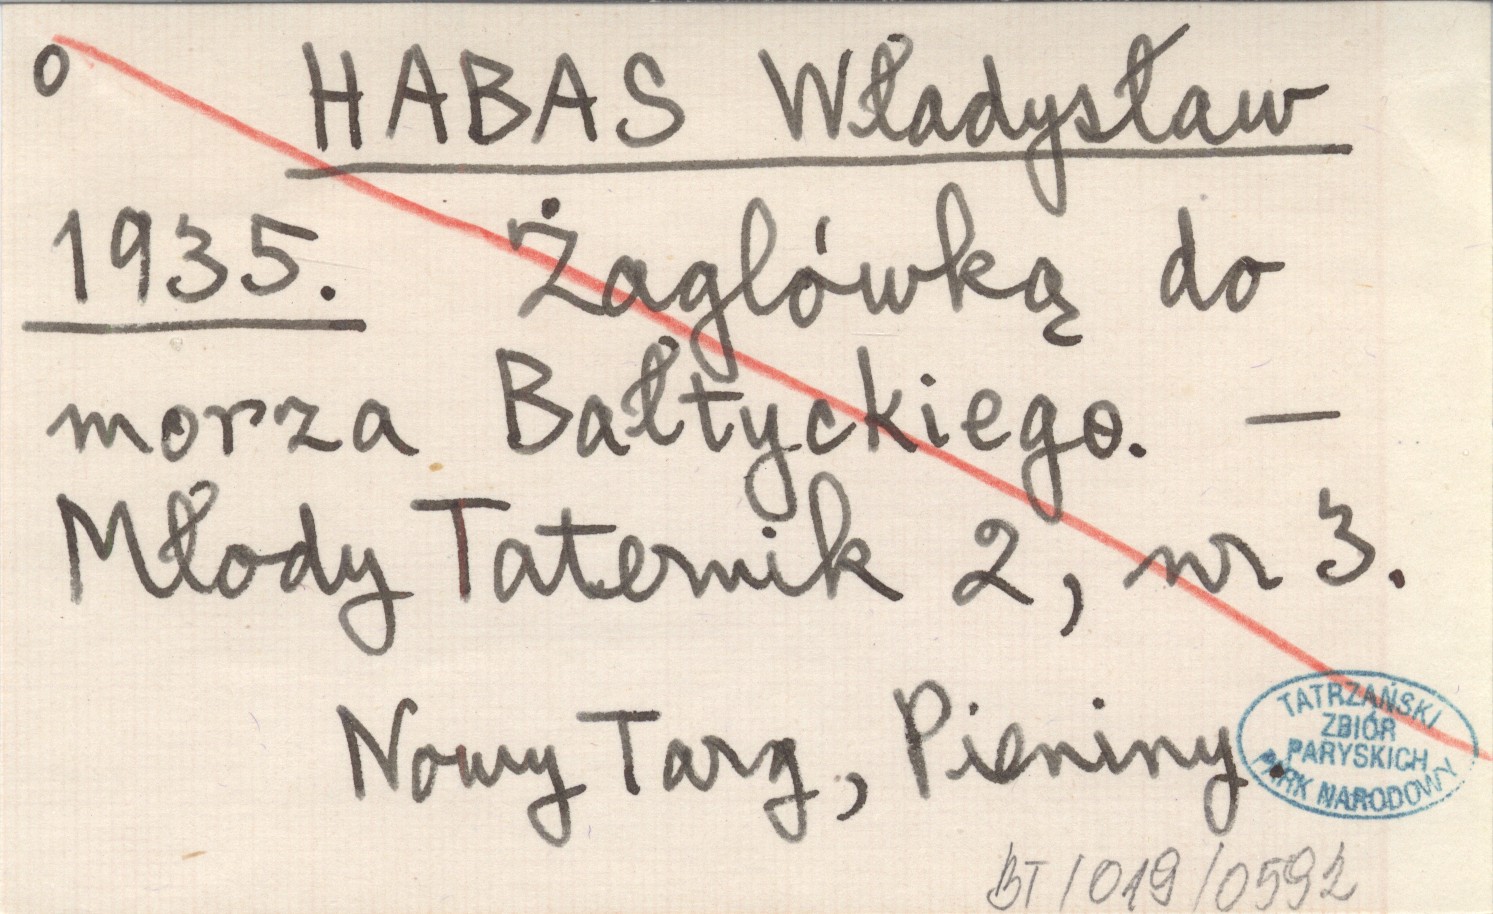 o HABAS Władysław
1935. Żaglówką do
morza Bałtyckiego. —
Młody Taternik 2, nr 3.
Nowy Targ, Pieniny.
TATRZAŃSKI
ZBIÓR
PARYSKICH
PARK NARODOWY
BT/019/0592